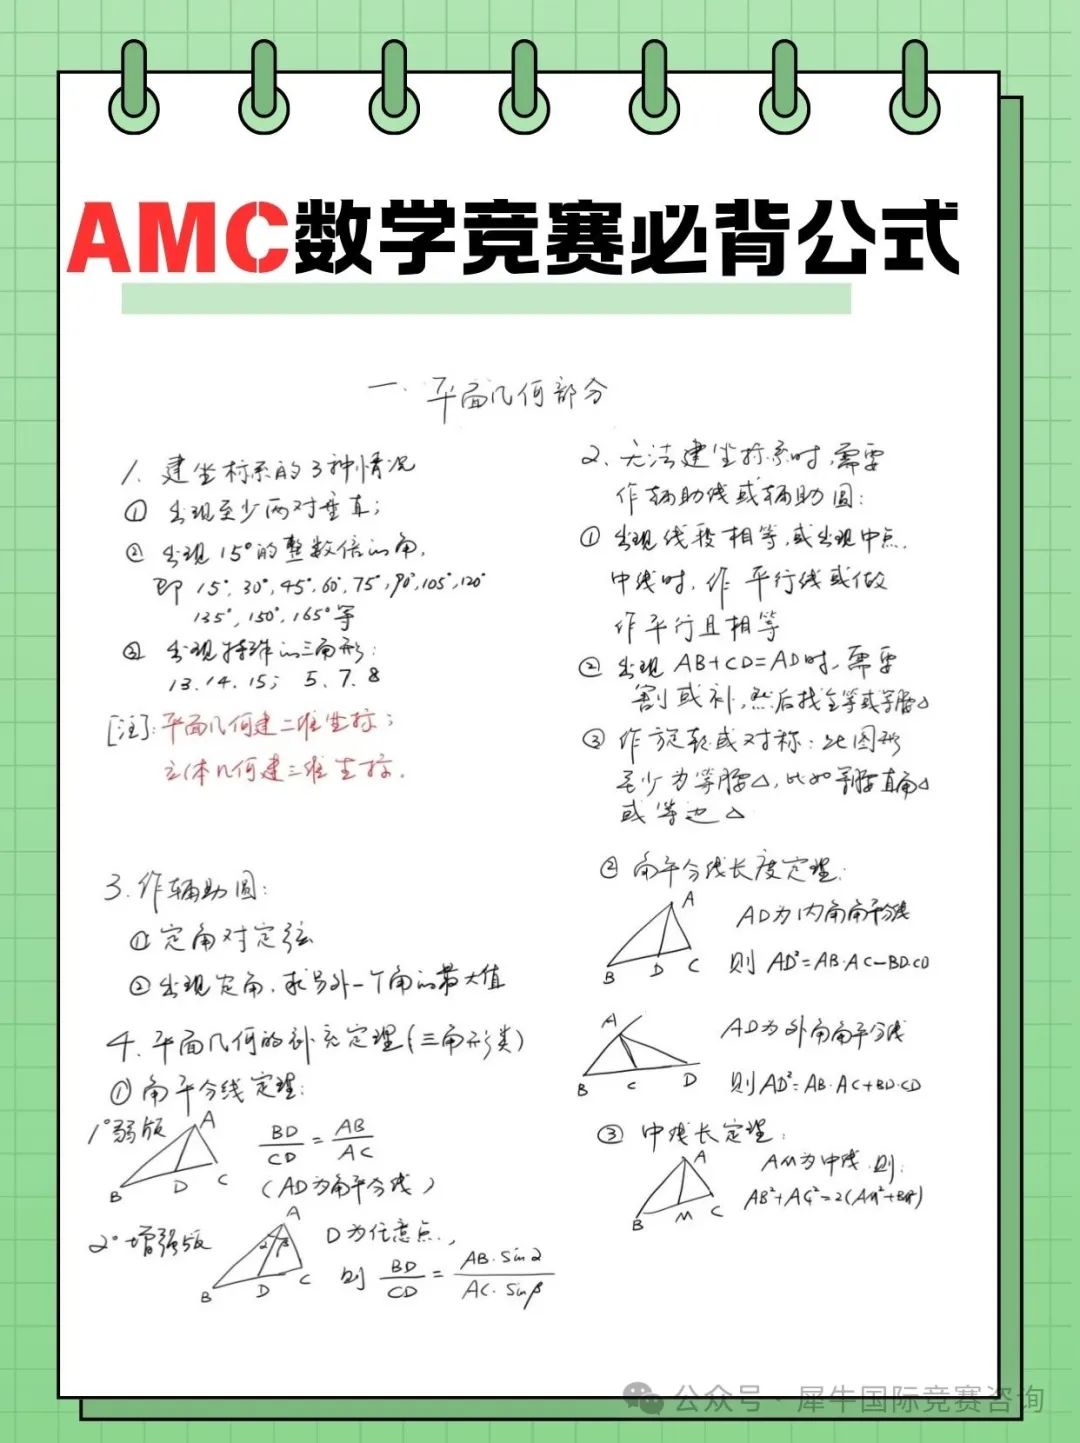 AMC数学竞赛必背公式
一. 平面几何部分
1. 建坐标系的3种情况
① 出现至少两对垂直;
② 出现15°的整数倍的角,
即 15°, 30°, 45°, 60°, 75°, 90°, 105°, 120°
135°, 150°, 165°等
③ 出现特殊的三角形:
13. 14. 15; 5、7、8
[注]: 平面几何建二维坐标;
立体几何建三维坐标.
2. 无法建坐标系时,需要
作辅助线或辅助圆:
① 出现线段相等,或出现中点.
中线时,作 平行线或做
作平行且相等
② 出现 AB+CD=AD时,需要
割或补,然后找全等或等腰△
③ 作旋转或对称: 此图形
至少为等腰△, 比如等腰直角△
或等边△
3. 作辅助圆:
① 定角对定弦
② 出现定角,求另外一个角的最大值
4. 平面几何的补充定理(三角形类)
① 角平分线定理:
1° 弱版
A
B
D
C
BD/CD = AB/AC
(AD为角平分线)
2° 增强版
A
α β
B
D
C
D为任意点,
则 BD/CD = AB·sinα/AC·sinβ
② 角平分线长度定理:
A
B
D
C
AD为内角角平分线
则 AD²=AB·AC-BD·CD
A
B
C
D
AD为外角角平分线
则AD²=AB·AC+BD·CD
③ 中线长定理:
A
B
M
C
AM为中线.则:
AB²+AC²=2(AM²+BM²)
公众号 · 犀牛国际竞赛咨询